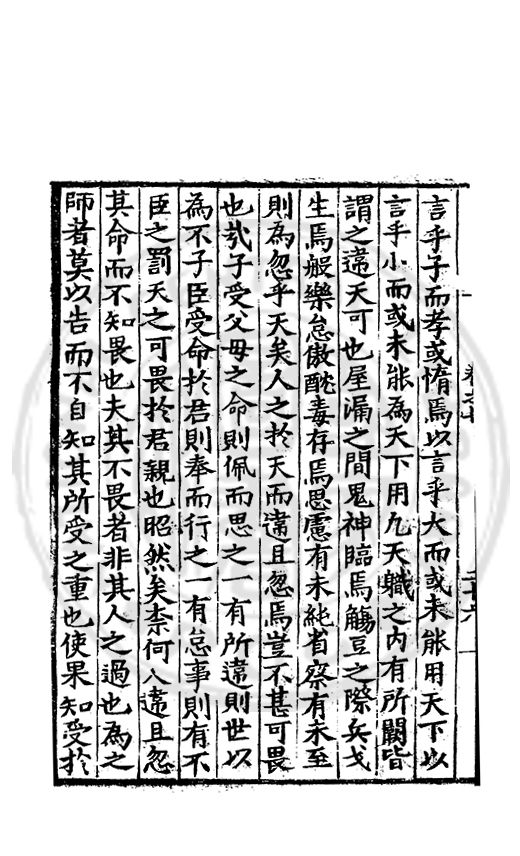 言乎子而孝或惰焉以言乎大而或未能用天下以
言乎小而或未能為天下用凢天軄之内有所闕皆
謂之違天可也屋漏之間鬼神臨焉觴豆之際兵戈
生焉般樂怠傲酖毒存焉思慮有未純省察有未至
則為忽乎天矣人之於天而違且忽焉豈不甚可畏
也㢤子受父母之命則佩而思之一有所違則世以
為不子臣受命於君則奉而行之一有怠事則有不
臣之罰天之可畏於君親也昭然矣柰何人違且忽
其命而不知畏也夫其不畏者非其人之過也為之
師者莫以告而不自知其所受之重也使果知受於